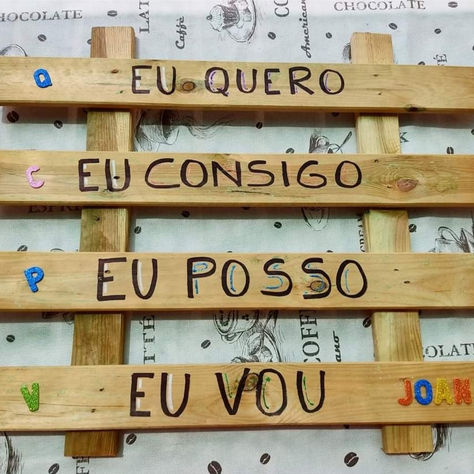 CHOCOLATE
LATTÉ
Caffè
Americano
CHOCOLATE
Q EU QUERO
C EU CONSIGO
P EU POSSO
CHOCOLATE
V EU VOU JOAN